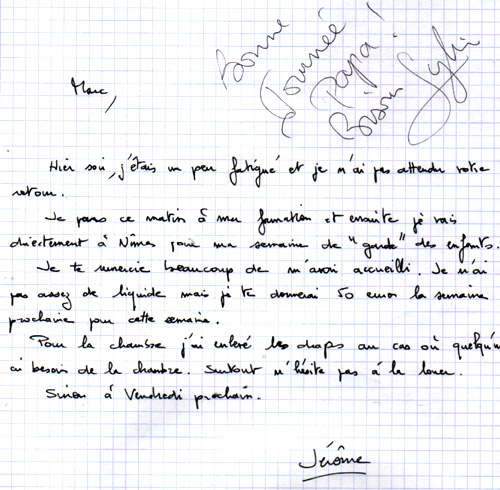 Bonne
Journée
Papa !
Bisou Sylvi
Marc,
Hier soir, j'étais un peu fatigué et je n'ai pas attendu votre
retour.
Je pars ce matin à ma formation et ensuite je vais
directement à Nîmes pour ma semaine de "garde" des enfants.
Je te remercie beaucoup de m'avoir accueilli. Je n'ai
pas assez de liquide mais je te donnerai 50 euros la semaine
prochaine pour cette semaine.
Pour la chambre j'ai enlevé les draps au cas où quelqu'un
ai besoin de la chambre. Surtout n'hésite pas à la louer.
Sinon à Vendredi prochain.
Jérôme